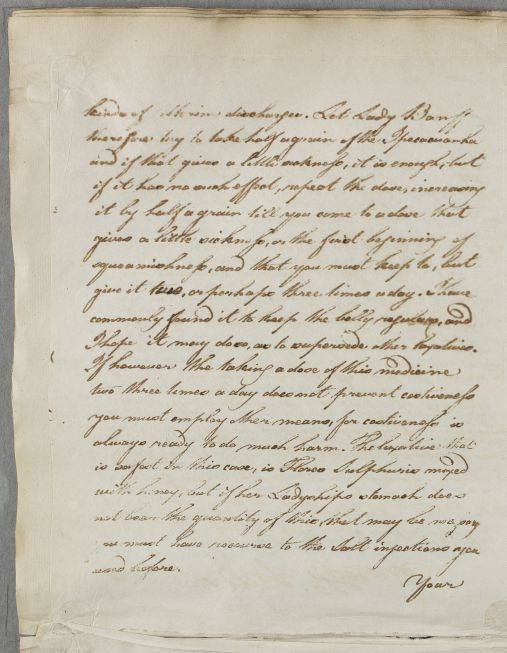 kinds of uterine discharges. Let Lady Banff
therefore try to take half a grain of the Ipecacuanha
and if that gives a little sickness, it is enough; but
if it has no such effect, repeat the dose, increasing
it by half a grain till you come to a dose that
gives a little sickness, or the first beginning of
squeamishness, and that you must keep to, but
give it two, or perhaps three times a day. I have
commonly found it to keep the belly regular, and
I hope it may do so, as to supersede other laxatives.
If however the taking a dose of this medicine
two three times a day does not prevent costiveness
you must employ other means, for costiveness is
always ready to do much harm. The laxative that
is safest in this case, is Flores Sulphuris mixed
with honey, but if her Ladyships stomach does
not bear the quantity of this, that may be necessary
we must have recourse to the Salt injections you
used before.
Your